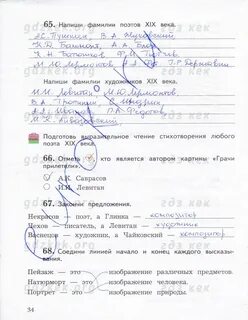 65. Напиши фамилии поэтов XIX века.
А.С. Пушкин, В.А. Жуковский
К.Д. Бальмонт, А.А. Блок
К.Н. Батюшков, Ф.И. Тютчев
М.Ю. Лермонтов, Г.Р. Державин
Напиши фамилии художников XIX века.
И.И. Левитан, М.Ю. Лермонтов
В.А. Тропинин, С. Щедрин
А.А. Иванов, П.А. Федотов
И.К. Айвазовский
Подготовь выразительное чтение стихотворения любого
поэта XIX века.
66. Отметь, кто является автором картины «Грачи
прилетели».
А.К. Саврасов
И.И. Левитан
67. Закончи предложения.
Некрасов — поэт, а Глинка — композитор
Чехов — писатель, а Левитан — художник
Васнецов — художник, а Чайковский — композитор
68. Соедини линией начало и конец каждого высказы-
вания.
Пейзаж — это изображение различных предметов.
Натюрморт — это изображение человека.
Портрет — это изображение природы.
34